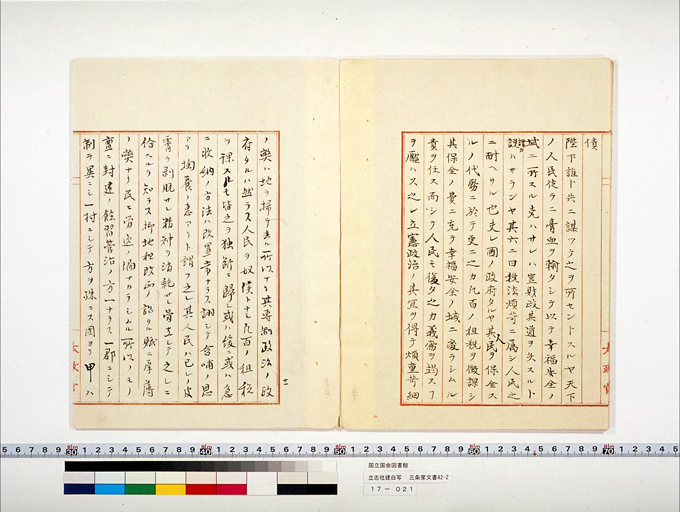 債
陛下誰ト共ニ謀ツテ之ヲ所セントスルヤ天下
ノ人民徒ラニ膏血ヲ輸タシテ以テ幸福安全ノ
域ニ所スル克ハサレハ豈財政其道ヲ失スルト
謂ハサランヤ其六ニ曰税法煩苛ニ属シ人民之
ニ耐ヘサル也夫レ国ノ政府タルヤ其民ノ保全ス
ルノ代務ニ於テ更ニ之カ凡百ノ租税ヲ徴課シ
其保全ノ費ニ充テ幸福安全ノ域ニ處ラシムル
責ヲ任ス而シテ人民モ復タ之カ義務ヲ竭ス
ヲ厭ハス之レ立憲政治ノ其宜ヲ得テ煩重苛細
ノ弊ハ地ヲ掃ケタル所以ナリ其専制政治ノ政
府タルハ然ラス人民ヲ奴僕トナシ凡百ノ租税
ヲ課スルモ皆之ヲ独断ニ帰シ或ハ後ニ或ハ急
ニ収納ノ方法ハ改置常ナラス詡シテ含哺ノ恩
アリ拘養ノ恵アリト謂フ之レ其人民ハ已レノ皮
膏ヲ剥脱サレ精神ヲ消耗サレ骨立シテ之レニ
給スルヲ知ラス抑地租改正ノ
ノ弊ナリ民ニ労逸ノ偏ナカラシムル所以ノモノ
ニ封建ノ餘習営治ノ方一ナラス一郡ニシテ
制ヲ異ニシ一村ニシテ方ヲ殊ニス固ヨリ甲ハ
太政官
太政官
国立国会図書館
立志社建白写 三条家文書42-2
17-021